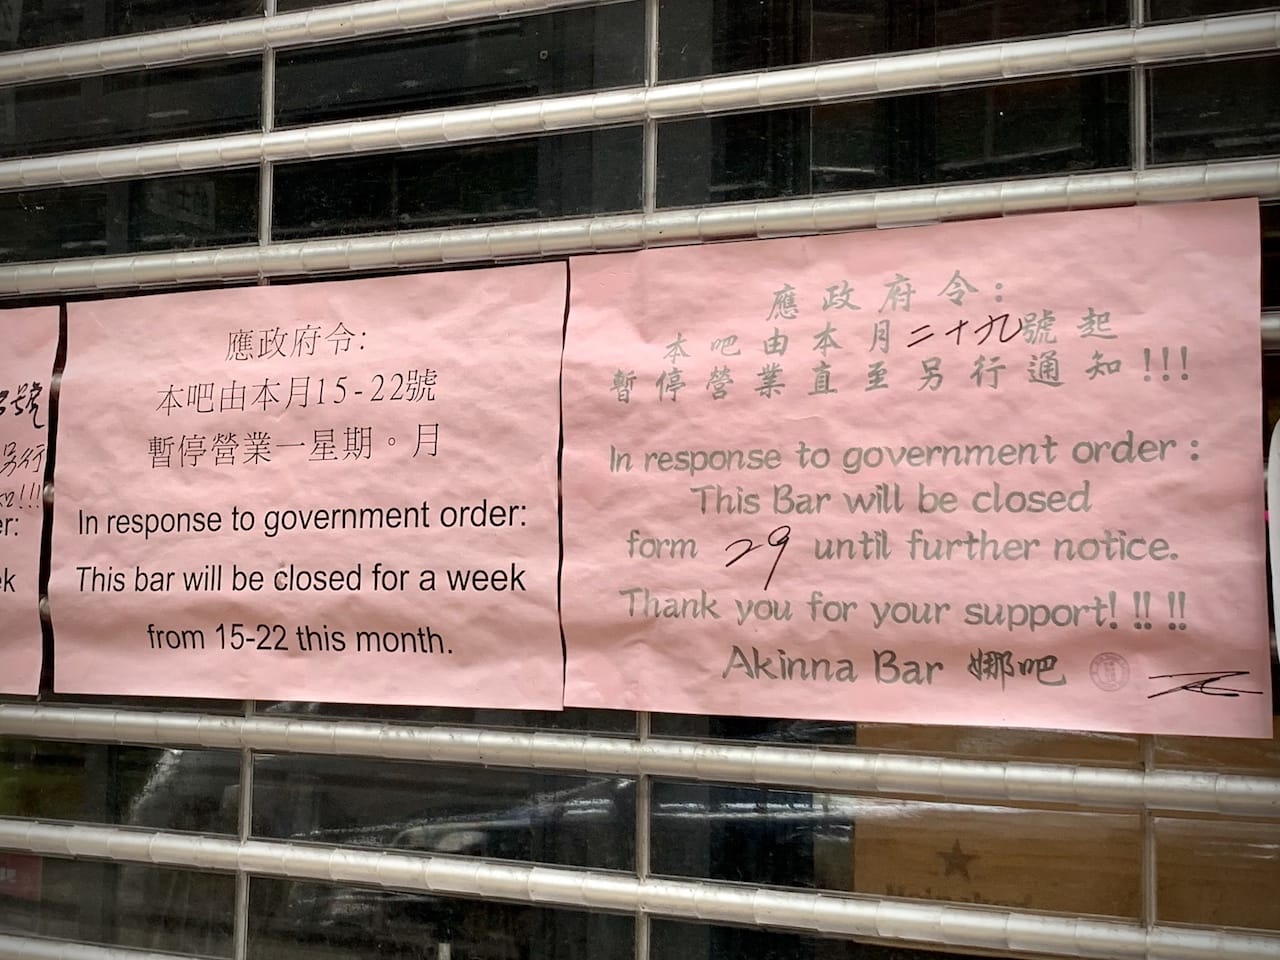 號
另行
知!!!
er:
ek
應政府令:
本吧由本月15-22號
暫停營業一星期。月
In response to government order:
This bar will be closed for a week
from 15-22 this month.
應政府令:
本吧由本月二十九號起
暫停營業直至另行通知!!!
In response to government order :
This Bar will be closed
form 29 until further notice.
Thank you for your support! !! !!
Akinna Bar 娜吧